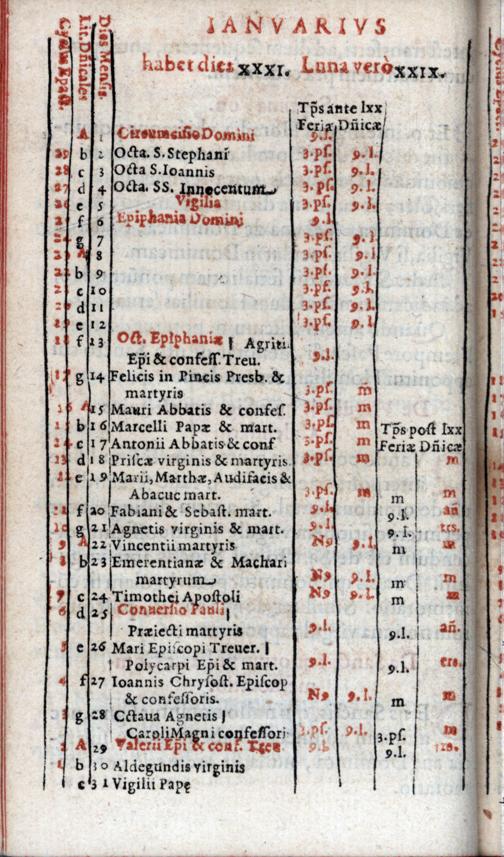 IANVARIVS
habet dies XXXI. Luna verò XXIX.
Cyclus Epact.
Lit. Dñicales
Dies Mensis.
Tp̃s ante lxx
Feriæ Dñicæ
A 1 Circumcisio Domini 9.l.
29 b 2 Octa. S. Stephani 3.ps. 9.l.
28 c 3 Octa S. Ioannis 3.ps. 9.l.
27 d 4 Octa. SS. Innocentum 3.ps. 9.l.
26 e 5 Vigilia 3.ps. 9.l.
f 6 Epiphania Domini 9.l.
g 7 3.ps. 9.l.
A 8 3.ps. 9.l.
b 9 3.ps. 9.l.
c 10 3.ps. 9.l.
d 11 3.ps. 9.l.
e 12 3.ps. 9.l.
18 f 23 Oct. Epiphaniæ | Agriti.
Ep̃i & confess. Treu. 9.l.
17 g 14 Felicis in Pincis Presb. &
martyris 3.ps. m
16 A 15 Mauri Abbatis & confes. 3.ps. m
15 b 16 Marcelli Papæ & mart. 3.ps. m
Tp̃s post lxx
Feriæ Dñicæ
c 17 Antonii Abbatis & conf 3.ps. m
13 d 18 Priscæ virginis & martyris. 3.ps. m m
e 19 Marii, Marthæ, Audifacis &
Abacuc mart. 3.ps. m m m
f 20 Fabiani & Sebast. mart. 9.l. 9.l. añ
10 g 21 Agnetis virginis & mart. 9.l. 9.l. trs.
9 A 22 Vincentii martyris N9 9.l. m m
8 b 23 Emerentianæ & Machari
martyrum N9 9.l. m m
7 c 24 Timothei Apostoli N9 9.l. m m
6 d 25 Conuersio Pauli |
Præiecti martyris 9.l. 9.l. añ.
5 e 26 Mari Episcopi Treuer. |
Polycarpi Ep̃i & mart. 9.l. 9.l. trs.
4 f 27 Ioannis Chrysost. Episcop
& confessoris. N9 9.l. m m
g 28 Cctaua Agnetis |
Caroli Magni confessori 3.ps. 9.l. 3.ps. m
2 A 29 Valerii Ep̃i & conf. Treu 9.l. 9.l. tra.
1 b 30 Aldegundis virginis
c 31 Vigilii Papę